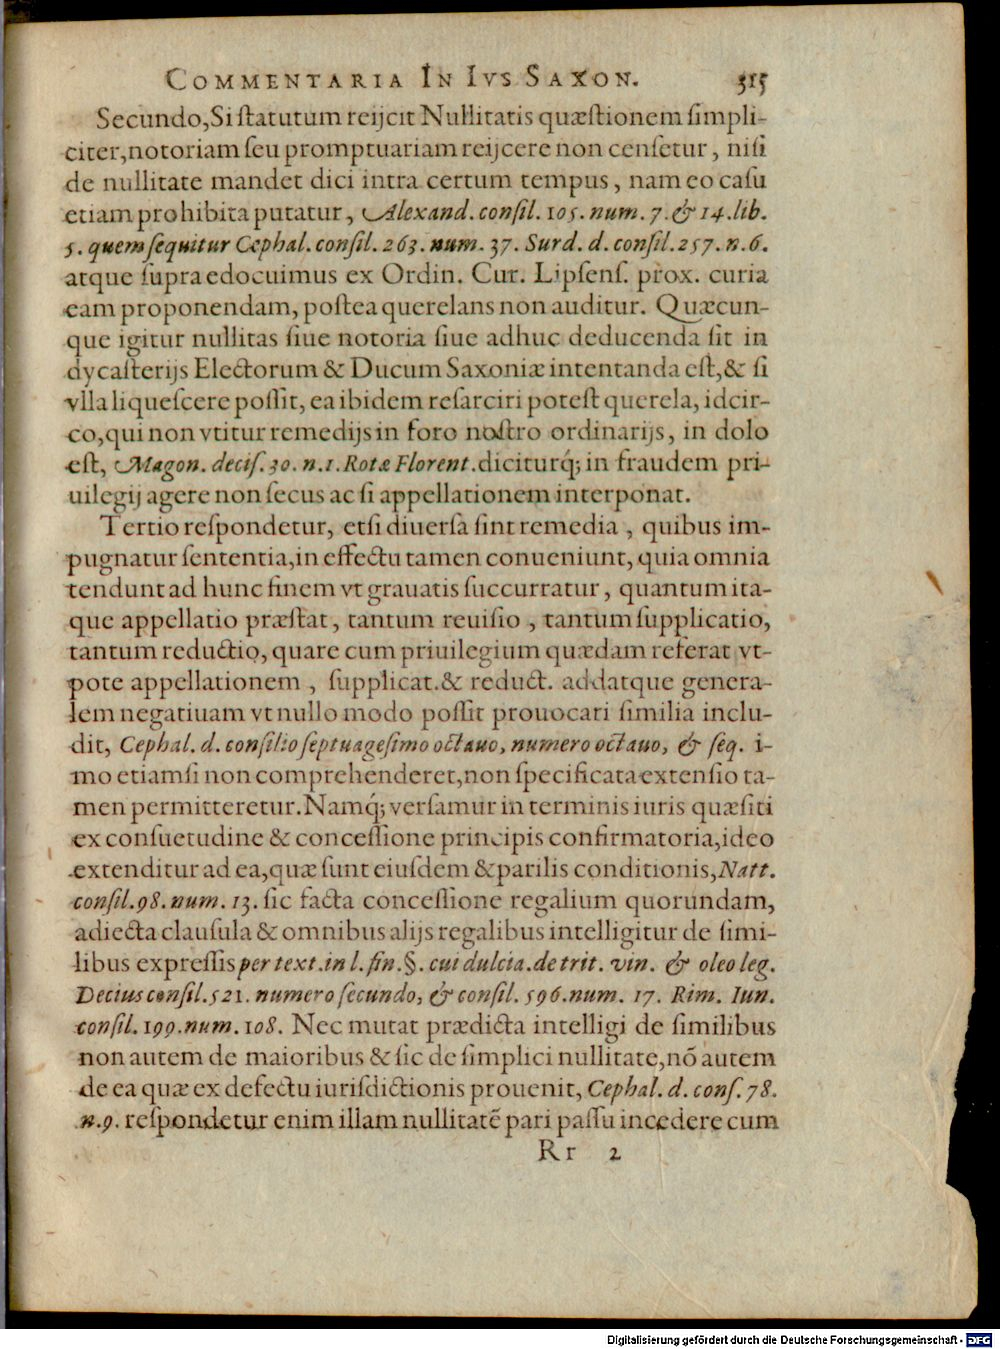 COMMENTARIA IN IVS SAXON. 315
Secundo, Si ſtatutum reijcit Nullitatis quæſtionem ſimpli-
citer, notoriam ſeu promptuariam reijcere non cenſetur, niſi
de nullitate mandet dici intra certum tempus, nam eo caſu
etiam prohibita putatur, Alexand. conſil. 105. num. 7. & 14. lib.
5. quem ſequitur Cephal. conſil. 263. num. 37. Surd. d. conſil. 257. n. 6.
atque ſupra edocuimus ex Ordin. Cur. Lipſenſ. prox. curia
eam proponendam, poſtea querelans non auditur. Quæcun-
que igitur nullitas ſiue notoria ſiue adhuc deducenda ſit in
dycaſterijs Electorum & Ducum Saxoniæ intentanda eſt, & ſi
vlla liqueſcere poſſit, ea ibidem reſarciri poteſt querela, idcir-
co, qui non vtitur remedijs in foro noſtro ordinarijs, in dolo
eſt, Magon. deciſ. 30. n. 1. Rotæ Florent. diciturq́; in fraudem pri-
uilegij agere non ſecus ac ſi appellationem interponat.
Tertio reſpondetur, etſi diuerſa ſint remedia, quibus im-
pugnatur ſententia, in effectu tamen conueniunt, quia omnia
tendunt ad hunc finem vt grauatis ſuccurratur, quantum ita-
que appellatio præſtat, tantum reuiſio, tantum ſupplicatio,
tantum reductio, quare cum priuilegium quædam referat vt-
pote appellationem, ſupplicat. & reduct. addatque genera-
lem negatiuam vt nullo modo poſſit prouocari ſimilia inclu-
dit, Cephal. d. conſilio ſeptuageſimo octauo, numero octauo, & ſeq. i-
mo etiamſi non comprehenderet, non ſpecificata extenſio ta-
men permitteretur. Namq́; verſamur in terminis iuris quæſiti
ex conſuetudine & conceſſione principis confirmatoria, ideo
extenditur ad ea, quæ ſunt eiuſdem & parilis conditionis, Natt.
conſil. 98. num. 13. ſic facta conceſſione regalium quorundam,
adiecta clauſula & omnibus alijs regalibus intelligitur de ſimi-
libus expreſſis per text. in l. fin. §. cui dulcia. de trit. vin. & oleo leg.
Decius conſil. 521. numero ſecundo, & conſil. 596. num. 17. Rim. Iun.
conſil. 199. num. 108. Nec mutat prædicta intelligi de ſimilibus
non autem de maioribus & ſic de ſimplici nullitate, nō autem
de ea quæ ex defectu iuriſdictionis prouenit, Cephal. d. conſ. 78.
n. 9. reſpondetur enim illam nullitatē pari paſſu incedere cum
Rr 2
Digitalisierung gefördert durch die Deutsche Forschungsgemeinschaft - DFG